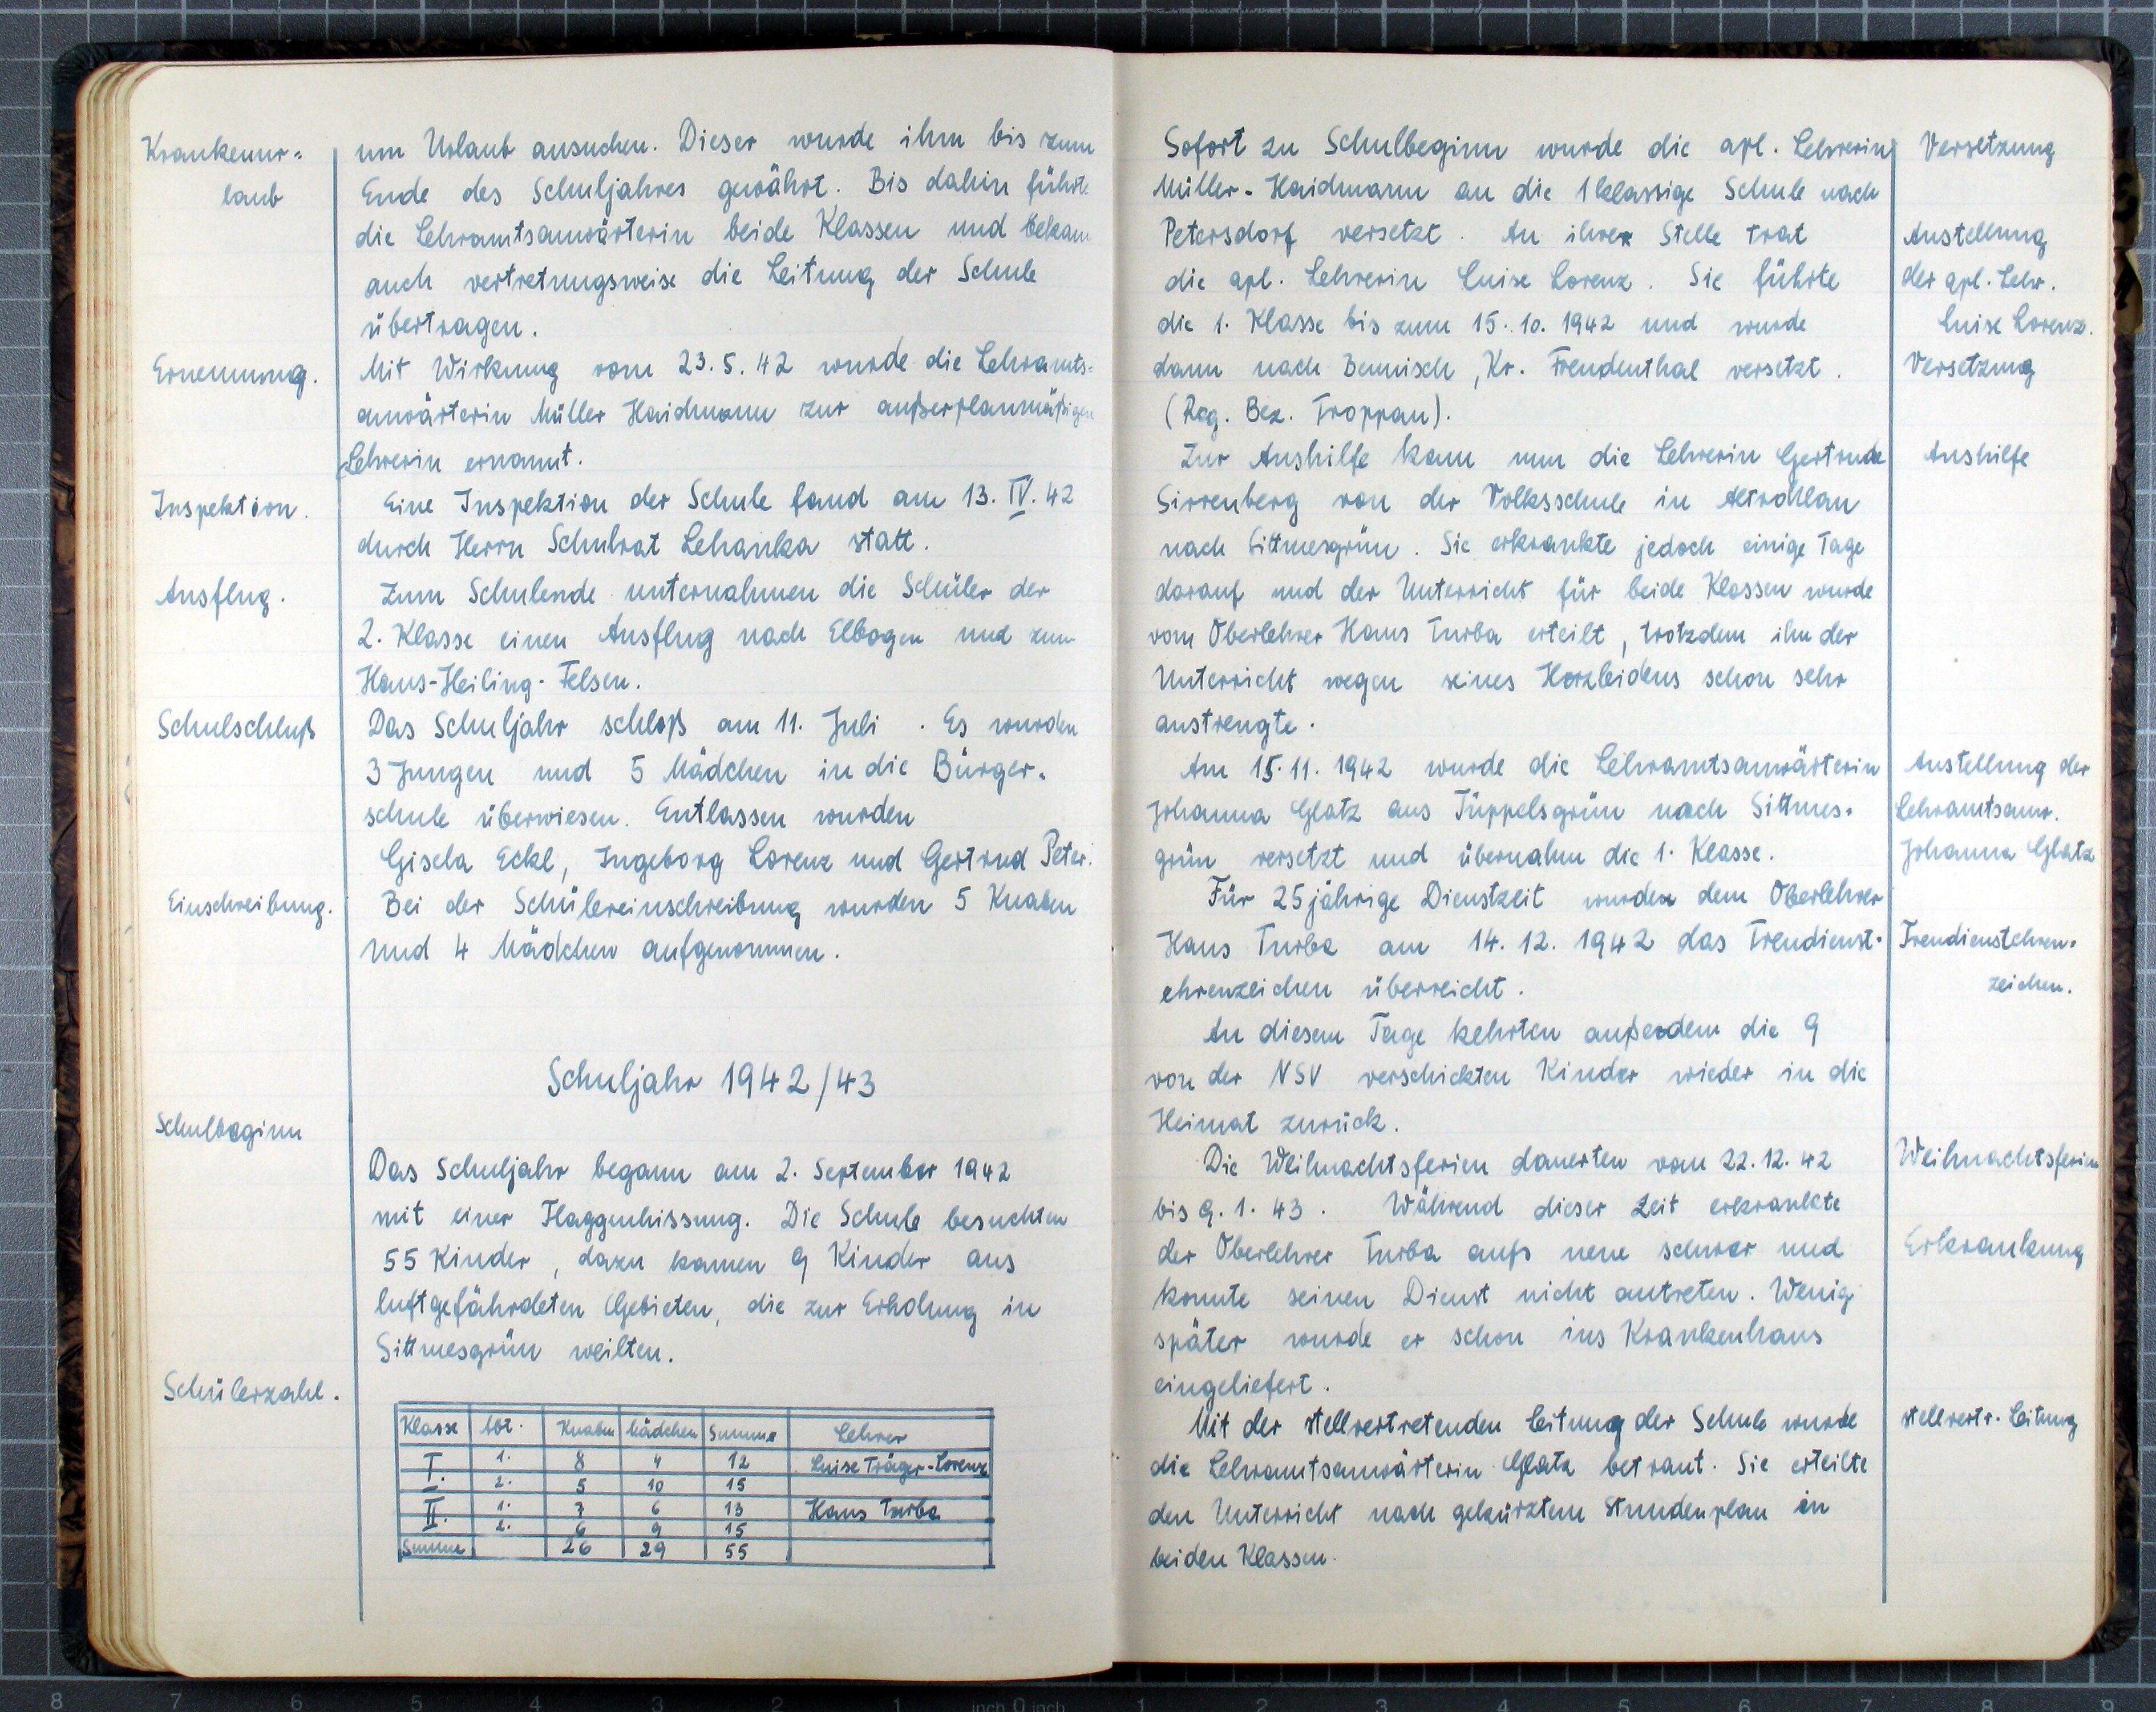 Krankenur=
laub
um Urlaub ansuchen. Dieser wurde ihm bis zum
Ende des Schuljahres gewährt. Bis dahin führte
die Lehramtsanwärterin beide Klassen und bekam
auch vertretungsweise die Leitung der Schule
übertragen.
Ernennung.
Mit Wirkung vom 23.5.42 wurde die Lehramts=
anwärterin Müller Haidmann zur außerplanmäßigen
Lehrerin ernannt.
Inspektion.
Eine Inspektion der Schule fand am 13. IV. 42
durch Herrn Schulrat Lehanka statt.
Ausflug.
Zum Schulende unternahmen die Schüler der
2. Klasse einen Ausflug nach Elbogen und zum
Hans-Heiling-Felsen.
Schulschluß
Das Schuljahr schloß am 11. Juli . Es wurden
3 Jungen und 5 Mädchen in die Bürger-
schule überwiesen. Entlassen wurden
Gisela Eckl, Ingeborg Lorenz und Gertrud Peter.
Einschreibung.
Bei der Schülereinschreibung wurden 5 Knaben
und 4 Mädchen aufgenommen.
Schuljahr 1942/43
Schulbeginn
Das Schuljahr begann am 2. September 1942
mit einer Flaggenhissung. Die Schule besuchten
55 Kinder, dazu kamen 9 Kinder aus
luftgefährdeten Gebieten, die zur Erholung in
Sittmesgrün weilten.
Schülerzahl.
Klasse Abt. Knaben Mädchen Summe Lehrer
I. 1. 8 4 12 Luise Träger-Lorenz
2. 5 10 15
II. 1. 7 6 13 Hans Turba
2. 6 9 15
Summe 26 29 55
Sofort zu Schulbeginn wurde die apl. Lehrerin
Müller-Haidmann an die 1klassige Schule nach
Petersdorf versetzt. An ihrer Stelle trat
die apl. Lehrerin Luise Lorenz. Sie führte
die 1. Klasse bis zum 15.10.1942 und wurde
dann nach Bennisch, Kr. Freudenthal versetzt.
(Reg. Bez. Troppau).
Zur Aushilfe kam nun die Lehrerin Gertrude
Sirrenberg von der Volksschule in Altrohlau
nach Sittmesgrün. Sie erkrankte jedoch einige Tage
darauf und der Unterricht für beide Klassen wurde
vom Oberlehrer Hans Turba erteilt, trotzdem ihn der
Unterricht wegen seines Herzleidens schon sehr
anstrengte.
Am 15.11.1942 wurde die Lehramtsanwärterin
Johanna Glatz aus Tüppelsgrün nach Sittmes-
grün versetzt und übernahm die 1. Klasse.
Für 25jährige Dienstzeit wurde dem Oberlehrer
Hans Turba am 14.12.1942 das Treudienst-
ehrenzeichen überreicht.
An diesem Tage kehrten außerdem die 9
von der NSV verschickten Kinder wieder in die
Heimat zurück.
Die Weihnachtsferien dauerten vom 22.12.42
bis 9.1.43. Während dieser Zeit erkrankte
der Oberlehrer Turba aufs neue schwer und
konnte seinen Dienst nicht antreten. Wenig
später wurde er schon ins Krankenhaus
eingeliefert.
Mit der stellvertretenden Leitung der Schule wurde
die Lehramtsanwärterin Glatz betraut. Sie erteilte
den Unterricht nach gekürztem Stundenplan in
beiden Klassen.
Versetzung
Anstellung
der apl. Lehr.
Luise Lorenz.
Versetzung
Aushilfe
Anstellung der
Lehramtsanw.
Johanna Glatz
Treudienstehren-
zeichen.
Weihnachtsferien
Erkrankung
stellvertr. Leitung
8 7 6 5 4 3 2 1 inch 0 inch 1 2 3 4 5 6 7 8 9